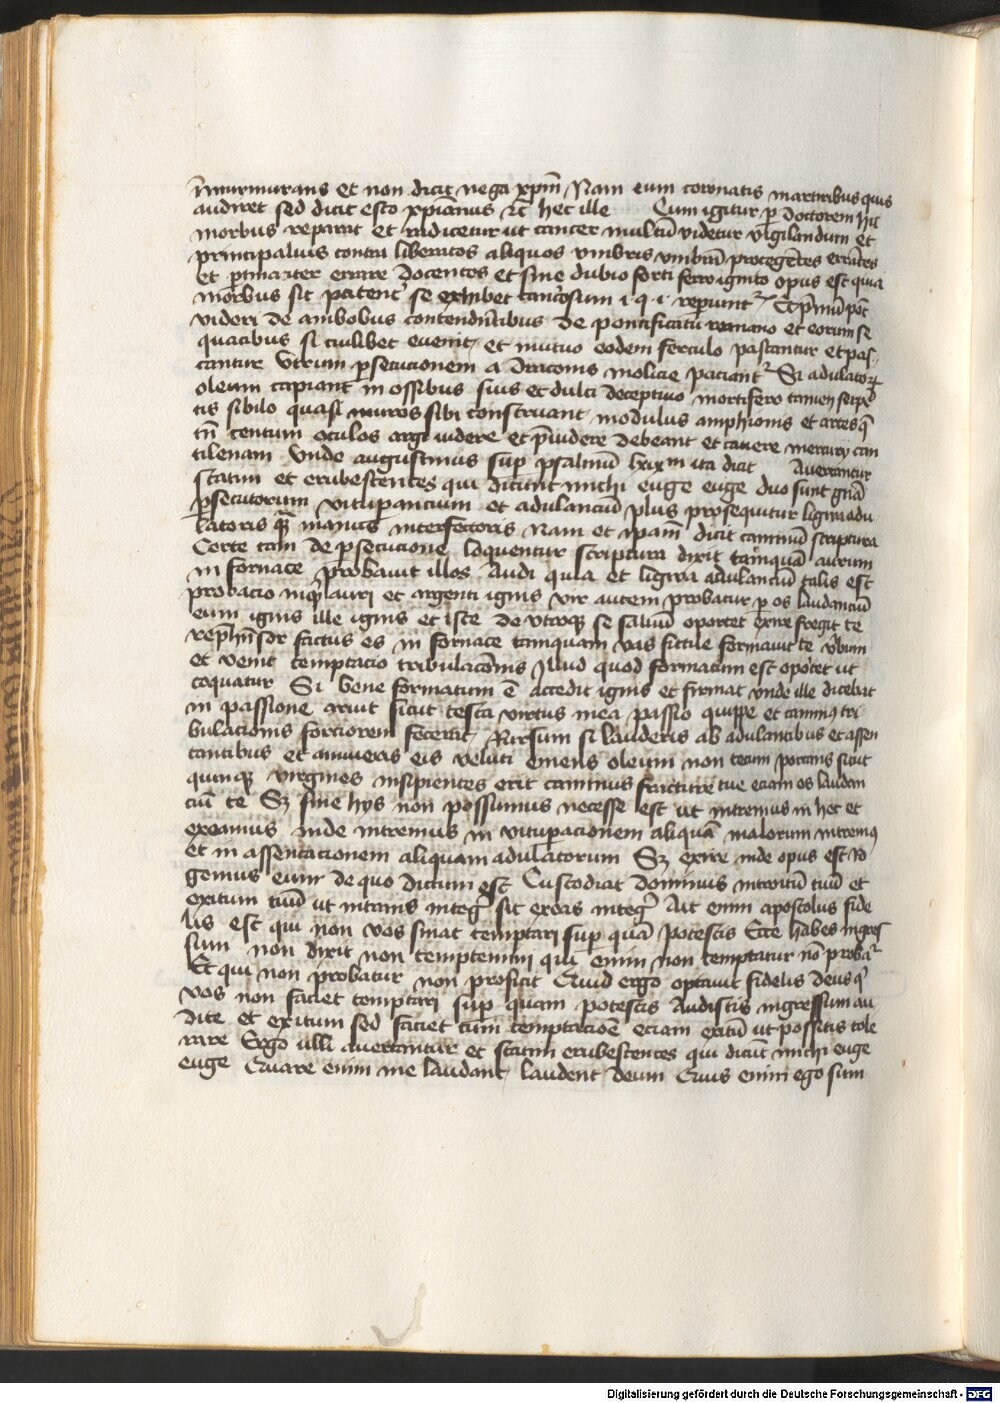 murmurans et non dicit nega xpm̄ Nam eum coronatis martiribus quis
audiret sed dicit esto xpianus etc̄ hec ille Cum igitur p doctorem
morbus reparat et radicetur ut cancer multū videtur vigilandum et
principaliuis contra liberatos aliquos vmbris protegētes errātes
et ptinaciter errare docentes et sine dubio forti ferro ignito opus est quia
morbus sit patent se exhibet i q i reperiunt
videri de ambobus contendētibus de pontificatu romano et eorum se
quacibus si cuilibet euenit et mutuo eodem ferculo pascantur et pas
cantur Vtrum psecucionem a draconis molicie paciant Si adulatoꝝ
oleum capiant in ossibus suis et dulci deceptiuo mortifero tamen serpē
tis sibilo quasi muros sibi construant modulus amphionis et artesqꝫ
tn̄ centum oculos argi videre et p̄uidere debeant et cauere mercurij can
tilenam Vnde augustinus sup psalmū lxix m ita dicit Auertantur
statim et erubescentes qui dicunt michi euge euge duo sunt gn̄a
psecutorum vitupancium et adulanciū plus prosequitur ligwa adu
latoris qꝫ manus interfectoris Nam et ipam̄ dicit caminū scriptura
Certe cum de psecucione loquerentur scriptura dixit tamquā aurum
in fornace probauit illos Audi quia et ligwa adulanciū talis est
probacio inqͥ auri et argenti ignis vir autem probatur p os laudanciū
eum ignis ille ignis et iste de vtroqꝫ te saluū oportet exire fregit te
rephensor factus es in fornace tamquam vas fictile formauit te vbum
et venit temptacio tribulacōnis Illud quod formatum est oportet ut
coquatur Si bene formatum ē accedit ignis et firmat vnde ille dicebat
in passione aruit sicut testa virtus mea passio quippe et caminꝰ tri
bulacionis forciorem fecerat Rursum si lauderis ab adulantibus et assen
tantibus et annueris eis veluti emens oleum non tecum portans sicut
quinqꝫ virgines insipientes erit caminus fracture tue eciam os laudan
ciū te Sꝫ sine hys non possumus necesse est ut intremus in hec et
exeamus inde intremus in vitupacionem aliquā malorum intremꝰ
et in assentacionem aliquam adulatorum Sꝫ exire inde opus est ro
gemus eum de quo dictum est Custodiat dominus introitū tuū et
exitum tuū ut intrans integ sit exeas integ Ait enim apostolus fide
lis est qui non vos sinat temptari sup quā potestis Ecce habes ingres
sum non dixit non temptemini qui enim non temptatur nō probat
Et qui non probatur non proficit Quid ergo optauit fidelis deus qͥ
vos non faciet temptari sup quam potestis Audistis ingressum au
dite et exitum sed faciet cum temptacioē eciam exitū ut possitis tole
rare Ergo illi auertantur et statim erubescentes qui dicūt michi euge
euge Quare enim me laudant laudent deum Quis enim ego sum
Digitalisierung gefördert durch die Deutsche Forschungsgemeinschaft - DFG